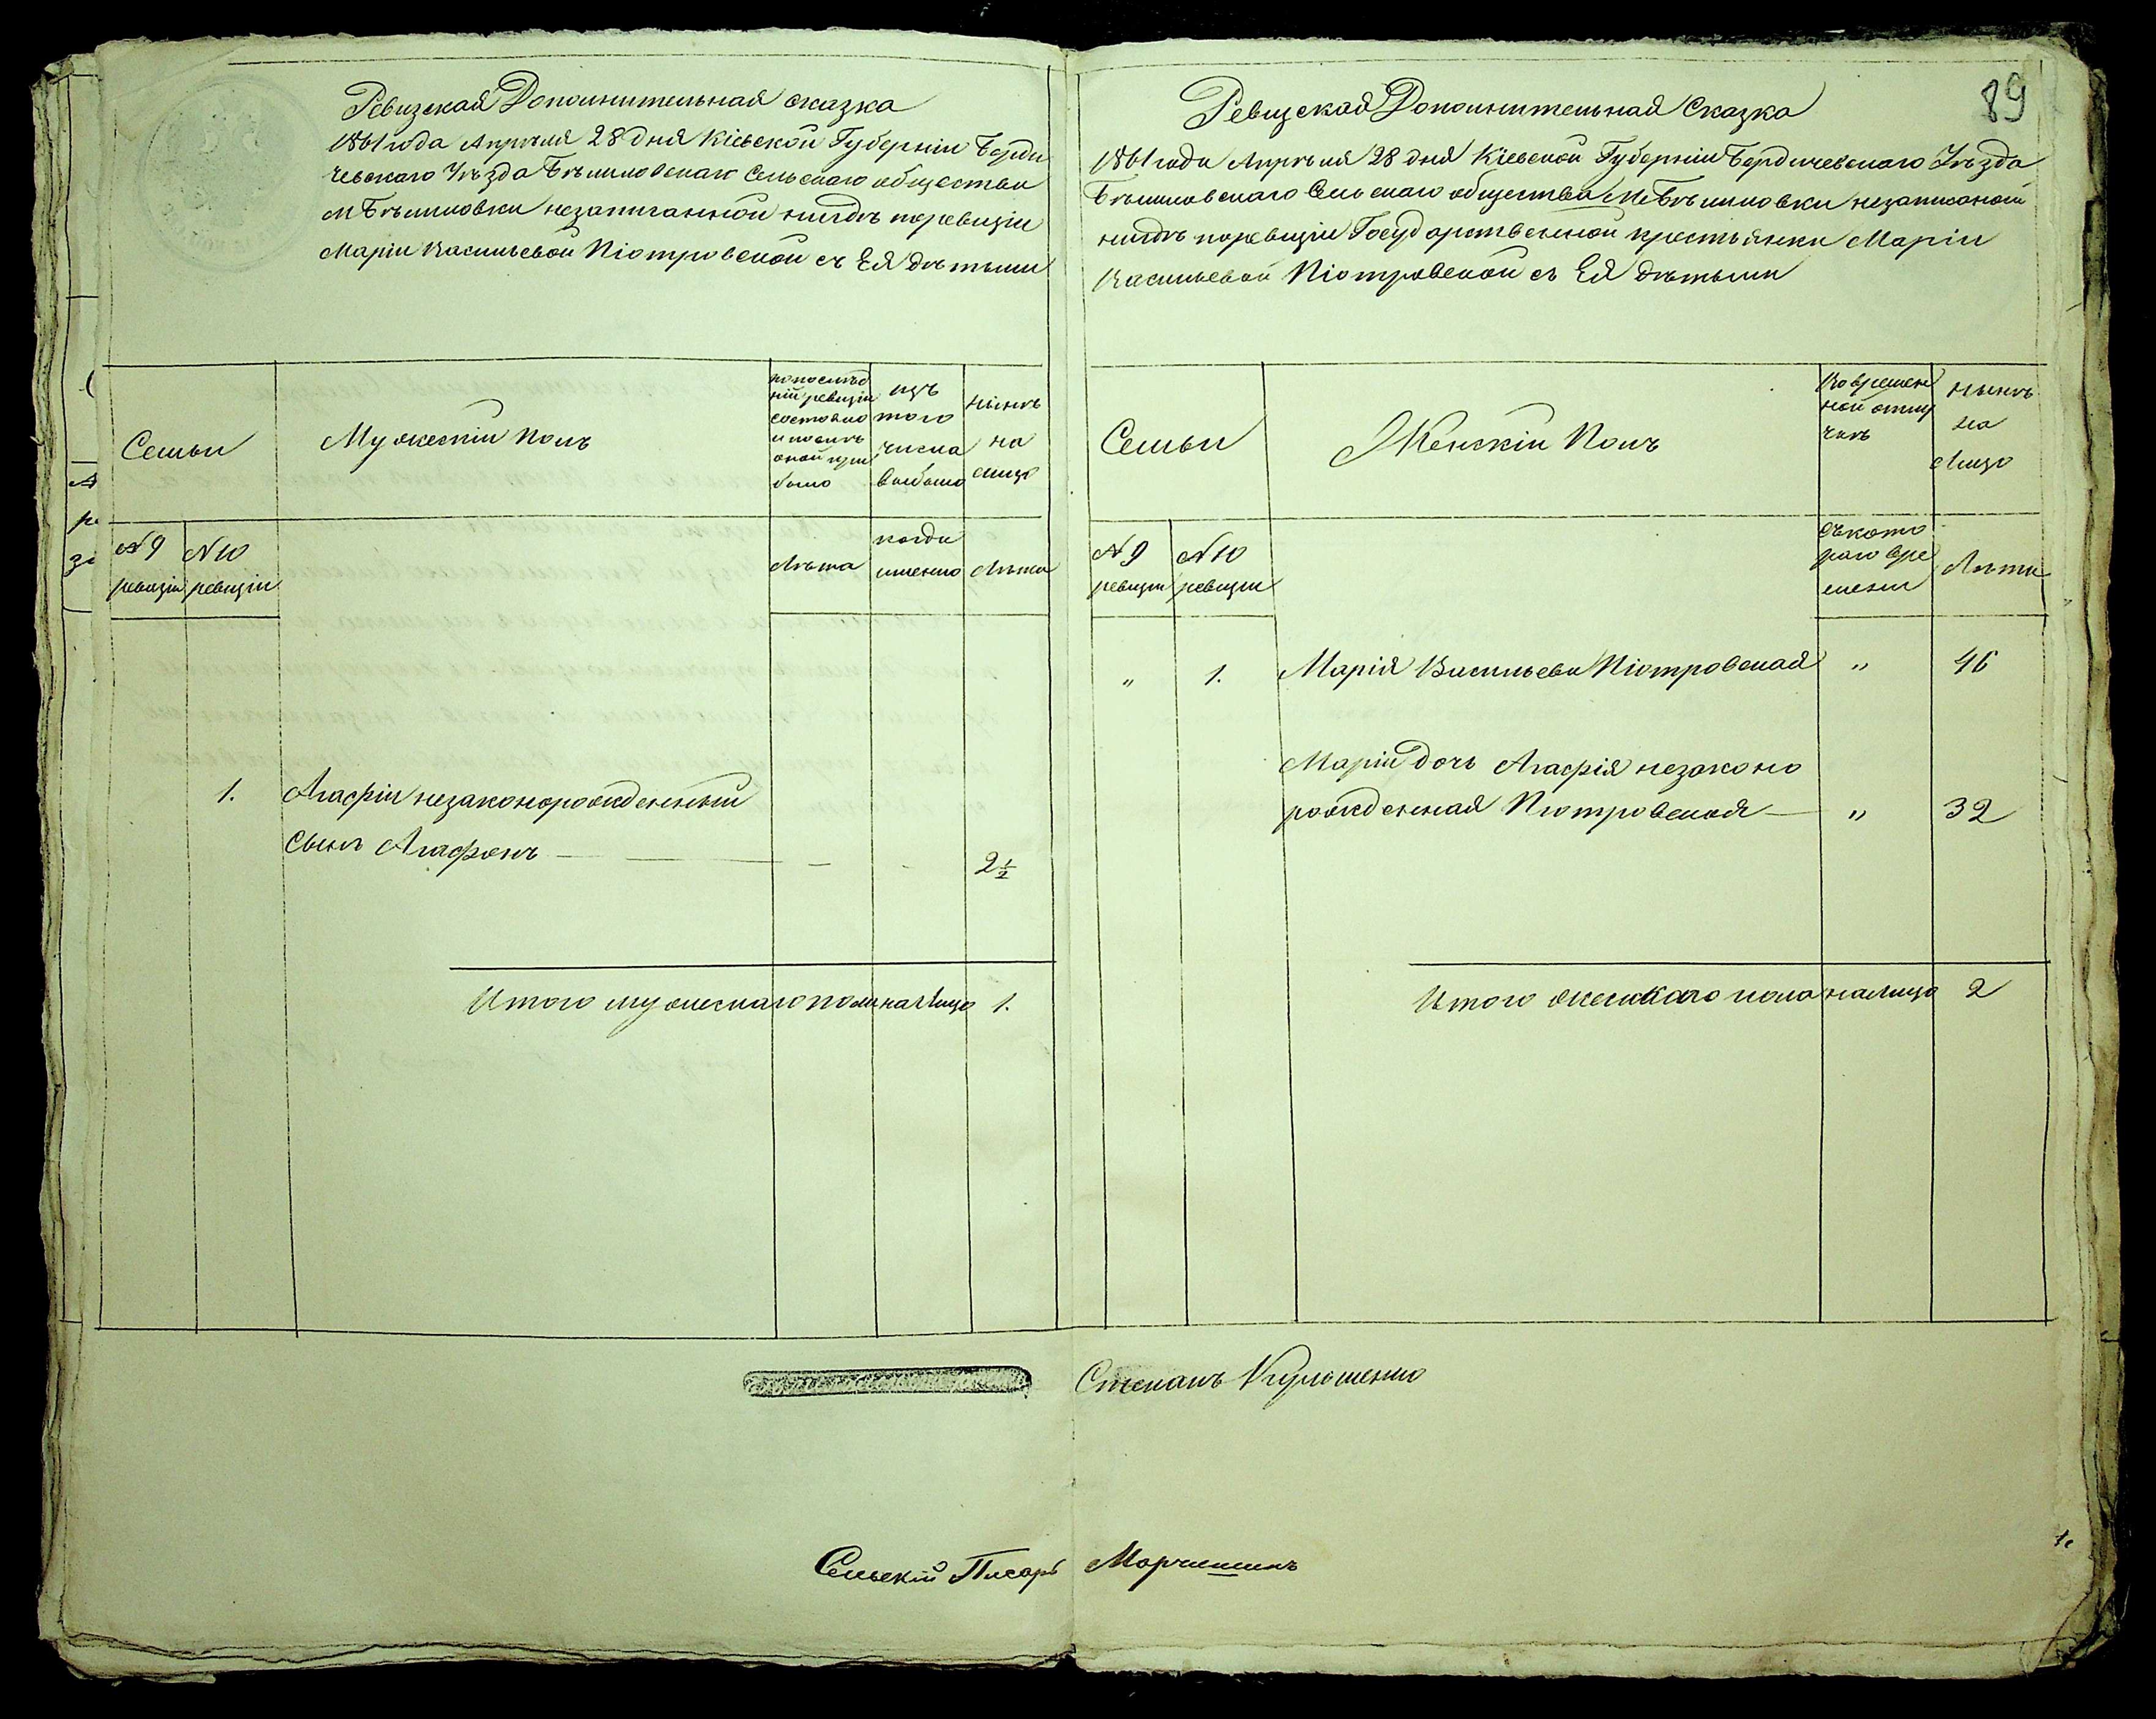 Ревизская Дополнительная сказка
1861 года Апрѣля 28 дня Кіевской Губерніи Берди
чевскаго Уѣзда Бѣлиловскаго Сельскаго общества
М Бѣлиловки незаписанной нигдѣ поревизіи
Маріи Васильевой Піотровской съ Ея дѣтьми
Семьи
Мужескій Полъ
попослѣд
ній ревизіи
состояло
и послѣ
оной при
было
изъ
того
числа
выбыло
нынѣ
на
лицо
№ 9
ревизіи
№ 10
ревизіи
Лѣта
когда
именно
Лѣта
1. Агафіи незаконорожденный
сынъ Агафонъ — — - - 2½
Итого мужескаго пола налицо 1.
89
Ревизская Дополнительная Сказка
1861 года Апрѣля 28 дня Кіевской Губерніи Бердичевскаго Уѣзда
Бѣлиловскаго Сельскаго общества М Бѣлиловки незаписаной
нигдѣ поревизіи Государственной крестьянки Маріи
Васильевой Піотровской съ Ея дѣтьми
Семьи
Женскій Полъ
Вовремен
ной отлу
чкѣ
нынѣ
на
Лицо
№ 9
ревизіи
№ 10
ревизіи
съкото
раго вре
мени
Лѣта
" 1. Марія Васильева Піотровская " 46
Маріи дочь Агафія незаконо
рожденная Піотровская — " 32
Итого женскаго пола налицо 2
Степанъ
Сельскій Писарь